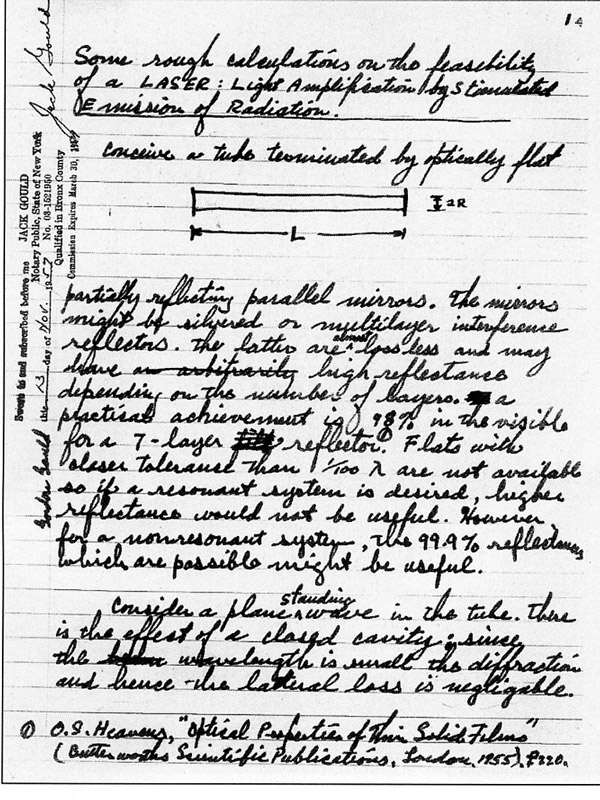 1
Some rough calculations on the feasibility
of a LASER: Light Amplification by Stimulated
Emission of Radiation.
conceive a tube terminated by optically flat
2R
L
partially reflecting parallel mirrors. The mirrors
might be silvered or multilayer interference
reflectors. The latter are almost lossless and may
have an arbitrarily high reflectance
depending on the number of layers. a
practical achievement is 98% in the visible
for a 7-layer reflector.① Flats with
closer tolerance than 1/100 λ are not available
so if a resonant system is desired, higher
reflectance would not be useful. However
for a nonresonant system, the 99.9% reflectances
which are possible might be useful.
Consider a plane standing wave in the tube. There
is the effect of a closed cavity; since
the wavelength is small the diffraction
and hence the lateral loss is negligable.
① O.S. Heavens, "Optical Properties of Thin Solid Films"
(Butterworths Scientific Publications, London, 1955), P220.
Gordon Gould
Sworn to and subscribed before me
this 13 day of Nov. 1957
JACK GOULD
Notary Public, State of New York
No. 03-1521950
Qualified in Bronx County
Commission Expires March 30, 19
Jack Gould